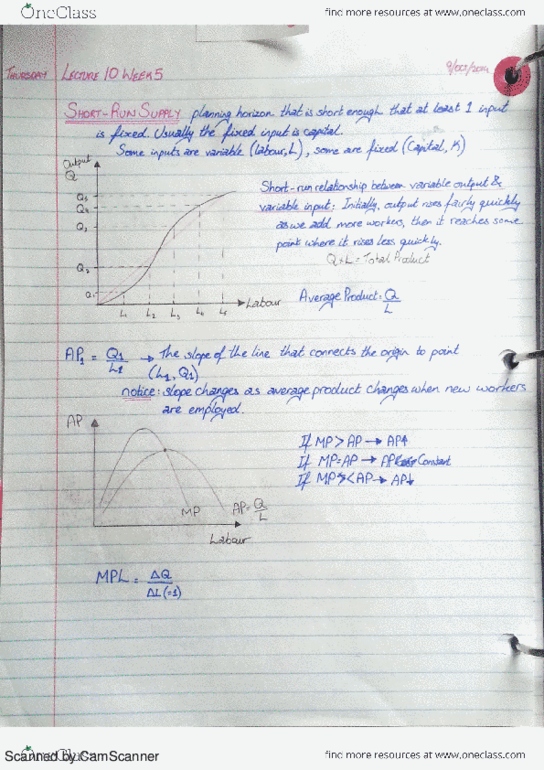 OneClass
find more resources at www.oneclass.com
THURSDAY LECTURE 10 WEEK 5
SHORT-RUN SUPPLY planning horizon that is short enough that at least 1 input
is fixed. Usually the fixed input is capital.
Some inputs are variable (Labour, L), some are fixed (Capital, K)
Output
Q
Q5
Q4
Q3
Q2
Q1
L1 L2 L3 L4 L5
Labour
Short-run relationship between variable output &
variable input: Initially, output rises fairly quickly
as we add more workers, then it reaches some
point where it rises less quickly.
Q+L = Total Product
Average Product = Q/L
AP1 = Q1/L1 → The slope of the line that connects the origin to point
(L1, Q1)
notice: slope changes as average product changes when new workers
are employed.
AP
MP
AP = Q/L
Labour
If MP > AP → AP↑
If MP = AP → AP Constant
If MP < AP → AP↓
MPL = ΔQ/ΔL(=1)
Scanned by CamScanner
OneClass
find more resources at www.oneclass.com